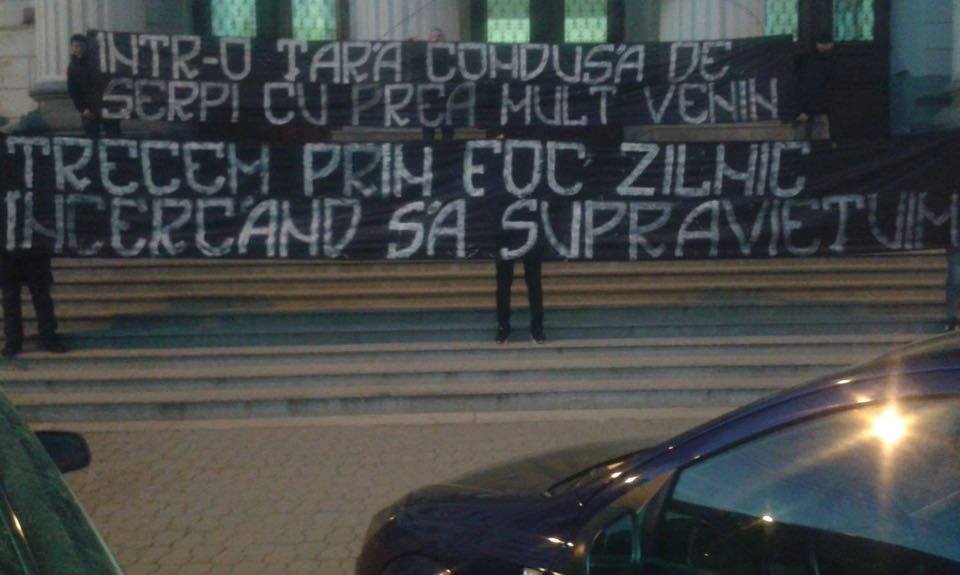 INTR-O TARĂ CONDUSĂ DE
SERPI CU PREA MULT VENIN
TRECEM PRIN FOC ZILNIC
INCERCÂND SĂ SUPRAVIETUIM